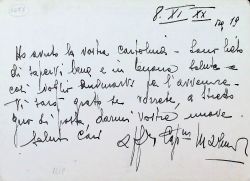 8. XI XX
Ho avuto la vostra cartolina. Sono lieto
di sapervi bene e in buona salute e
così voglio andiate per l'avvenire.
Vi sarò grato se vorrete, a stretto
giro di posta, darmi vostre nuove.
Saluti cari